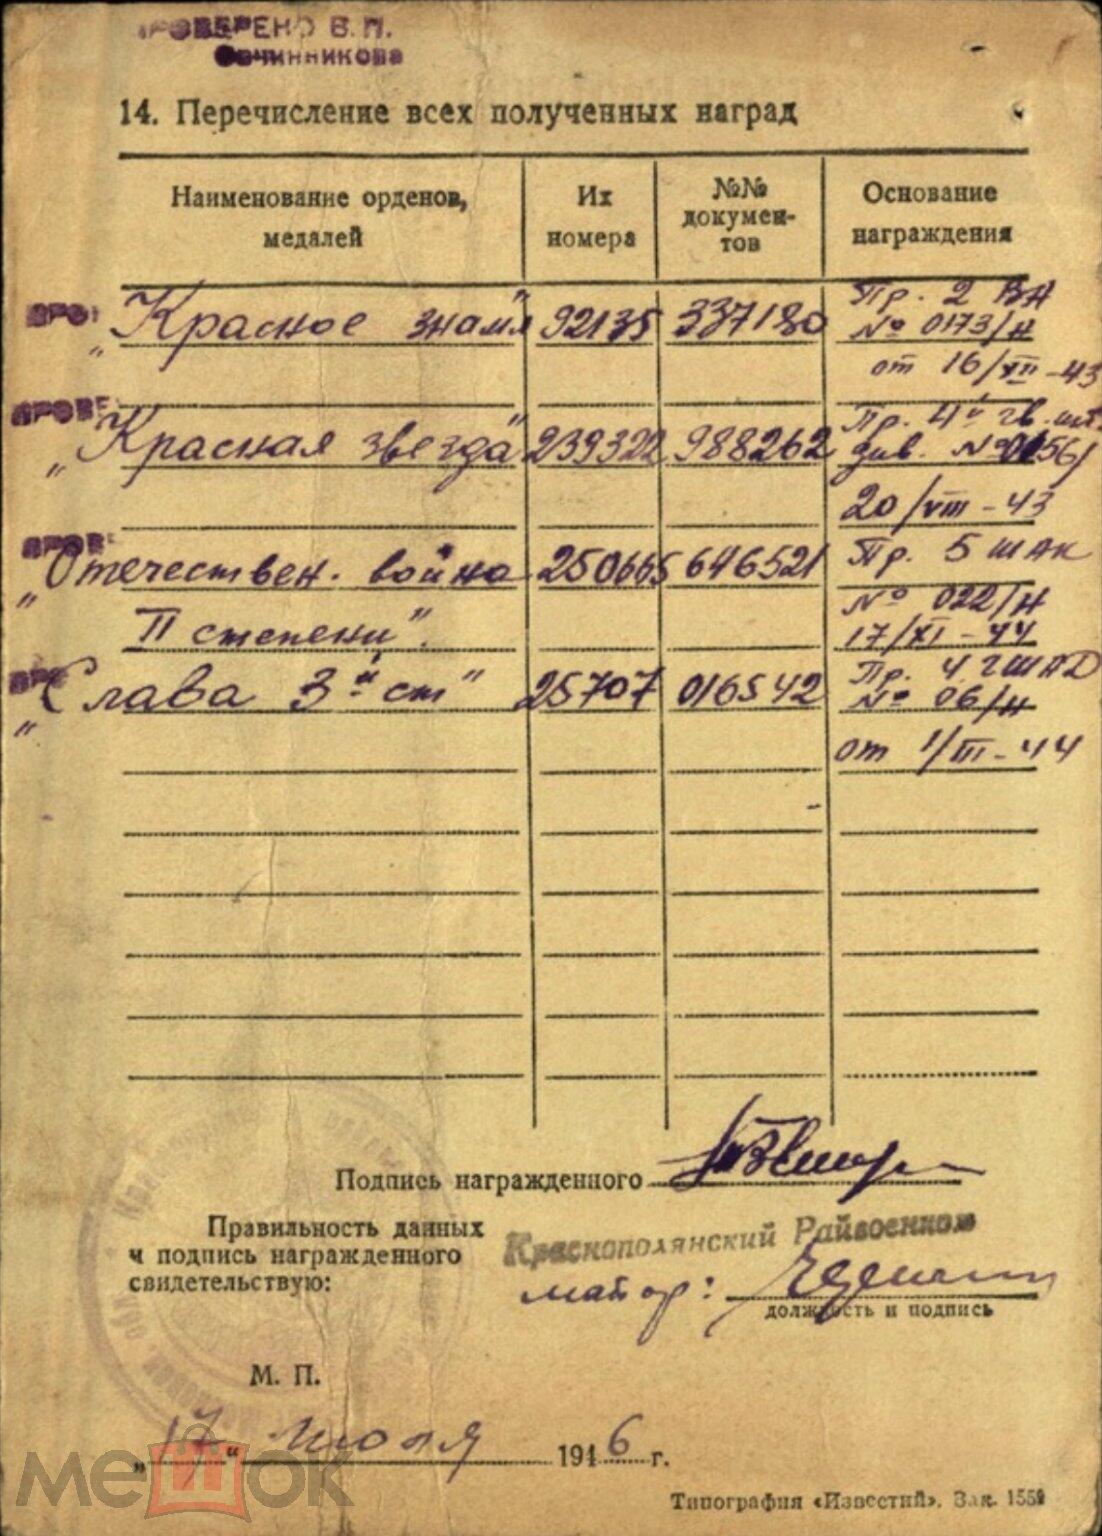 ПРОВЕРЕНО В.П.
Овчинникова
14. Перечисление всех полученных наград
Наименование орденов, медалей
Их номера
№№ документов
Основание награждения
ПРОВ
"Красное знамя" 92135 337180 Пр. 2 ВА
№ 0173/н
от 16/XII-43
ПРОВЕ
"Красная звезда" 239322 988262 Пр. 4й гв. шт.
див. № 0156/
20/VIII-43
ПРОВЕ
"Отечествен. война 250665 646521 Пр. 5 ШАК
№ 022/н
II степени". 17/XI-44
ПРОВ
"Слава 3й ст" 25707 016542 Пр. 4 ГШАД
№ 06/н
от 1/III-44
Подпись награжденного
Правильность данных
и подпись награжденного
свидетельствую:
Краснополянский Райвоенком
майор:
должность и подпись
М. П.
„17“ июля 1946 г.
Типография «Известий». Зак. 1559
мешок